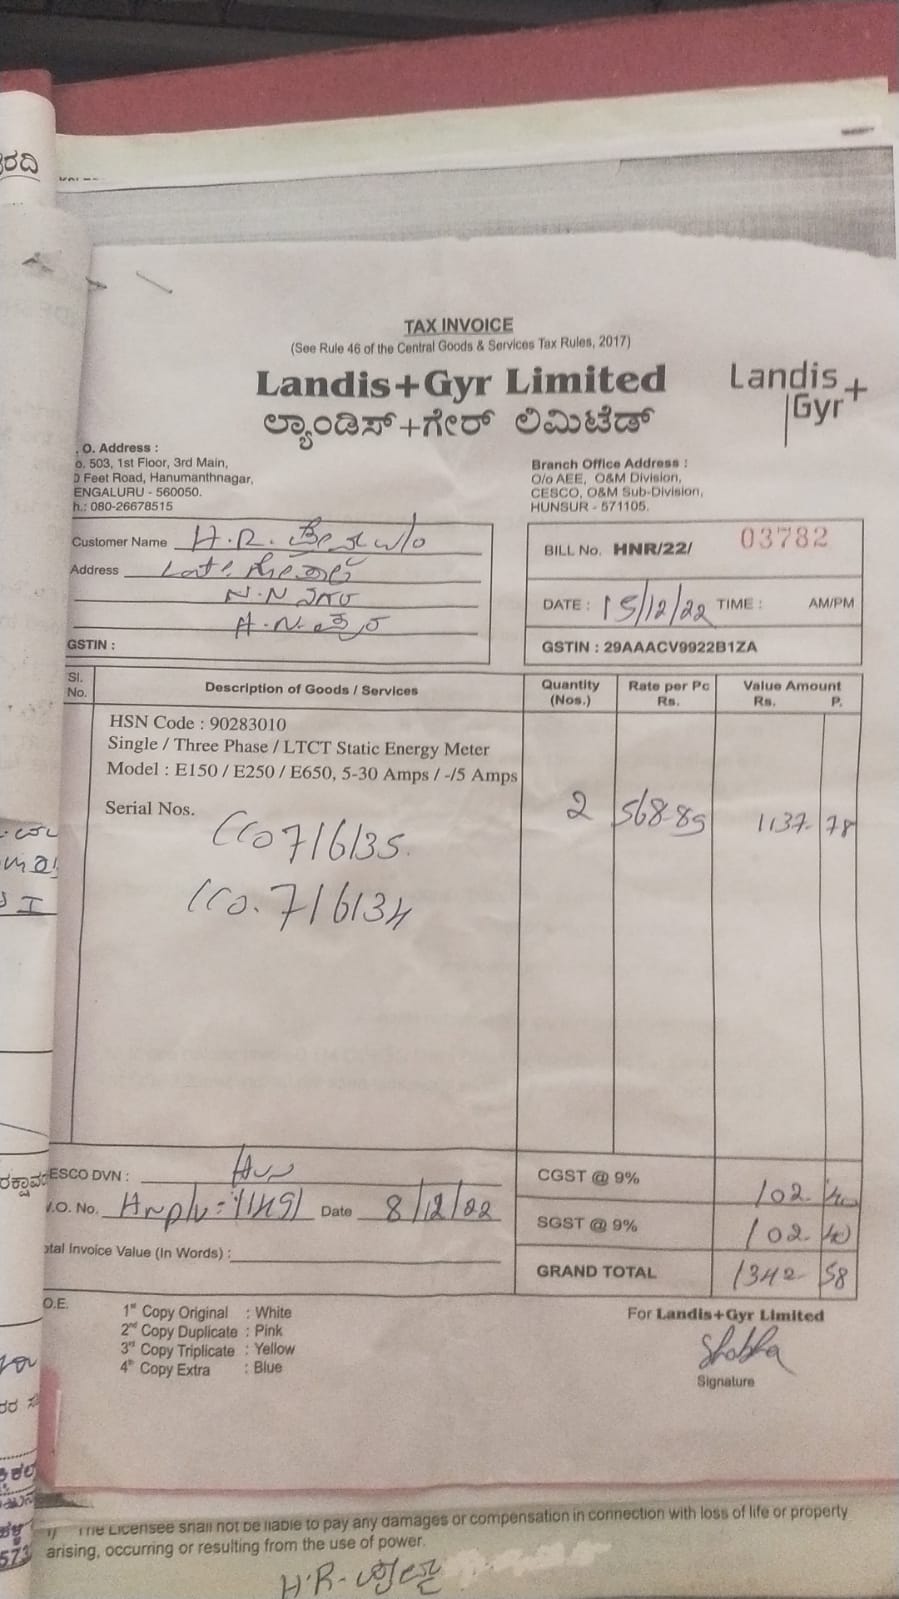 ರದಿ
TAX INVOICE
(See Rule 46 of the Central Goods & Services Tax Rules, 2017)
Landis+Gyr Limited
Landis+
Gyr
ಲ್ಯಾಂಡಿಸ್+ಗೇರ್ ಲಿಮಿಟೆಡ್
. O. Address :
o. 503, 1st Floor, 3rd Main,
0 Feet Road, Hanumanthnagar,
ENGALURU - 560050.
h.: 080-26678515
Branch Office Address :
O/o AEE, O&M Division,
CESCO, O&M Sub-Division,
HUNSUR - 571105.
Customer Name H.R. w/o
Address Late.
GSTIN :
BILL No. HNR/22/ 03782
DATE : 15/12/22 TIME : AM/PM
GSTIN : 29AAACV9922B1ZA
Sl. No. Description of Goods / Services Quantity (Nos.) Rate per Pc Rs. Value Amount Rs. P.
HSN Code : 90283010
Single / Three Phase / LTCT Static Energy Meter
Model : E150 / E250 / E650, 5-30 Amps / -/5 Amps
Serial Nos. 2 568.89 1137.78
CC0716135.
CC0.716134
ESCO DVN : Hun
.O. No. Date 8/12/22
otal Invoice Value (In Words) :
CGST @ 9% 102.40
SGST @ 9% 102.40
GRAND TOTAL 1342 58
O.E.
1st Copy Original : White
2nd Copy Duplicate : Pink
3rd Copy Triplicate : Yellow
4th Copy Extra : Blue
For Landis+Gyr Limited
Shobha
Signature
The Licensee shall not be liable to pay any damages or compensation in connection with loss of life or property
arising, occurring or resulting from the use of power.
H.R-